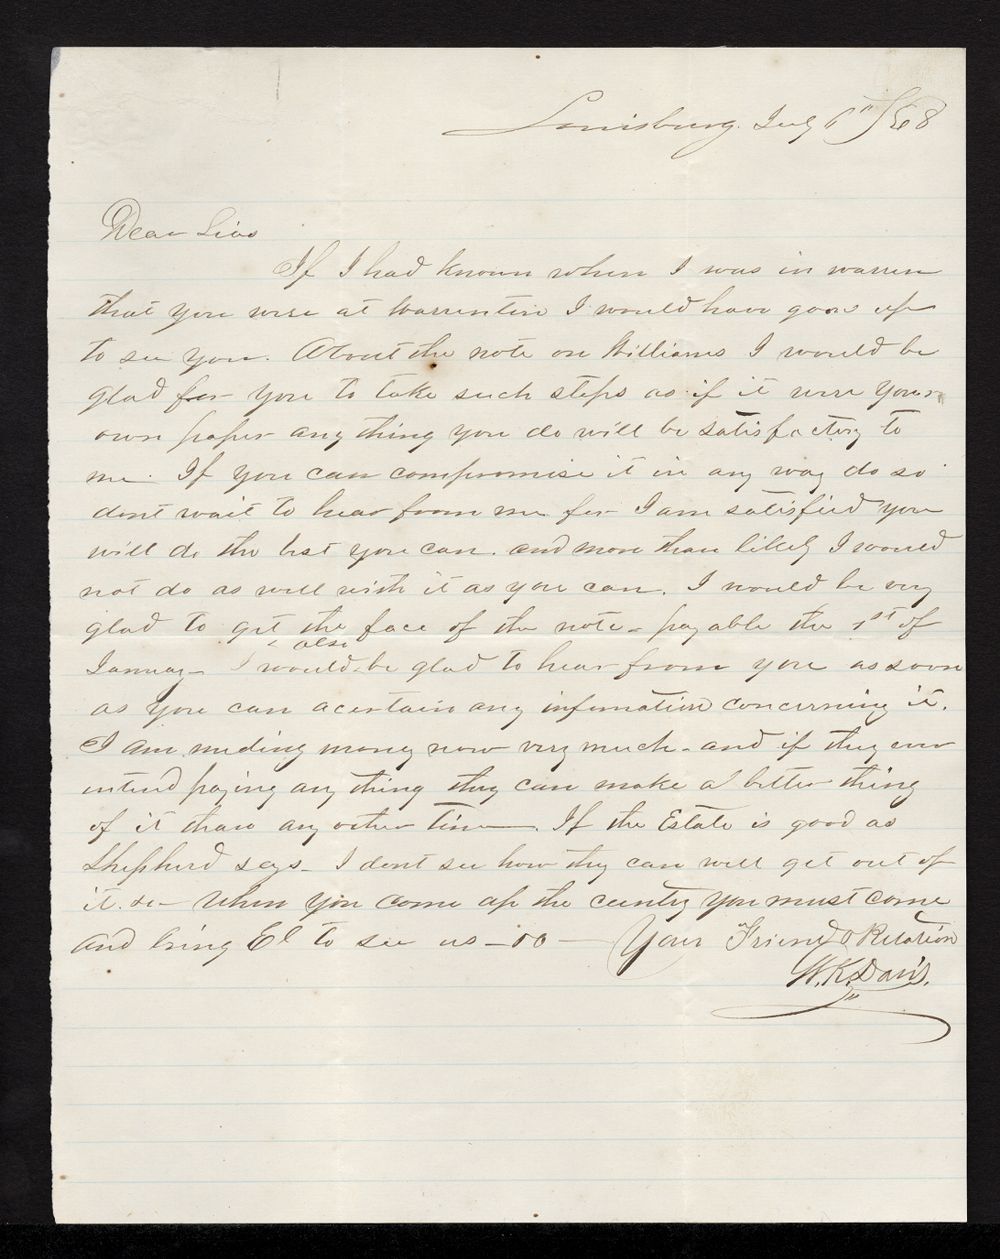 Louisburg. July 6th /68
Dear
If I had known when I was in warren
that you were at Warrenton I would have gone up
to see you. About the note on Williams I would be
glad for you to take such steps as if it were your
own paper any thing you do will be satisfactory to
me. If you can compromise it in any way do so
dont wait to hear from me for I am satisfied you
will do the best you can. and more than likely I would
not do as well with it as you can. I would be very
glad to get the face of the note - payable the 1st of
January - I also would be glad to hear from you as soon
as you can acertain any information concerning it.
I am needing money now very much - and if they ever
intend paying any thing they can make a better thing
of it than any other time. If the Estate is good as
Shepherd says - I dont see how they can well get out of
it. &c - When you come up the country you must come
and bring El to see us - oo - Your Friend & Relation
W. K. Davis.